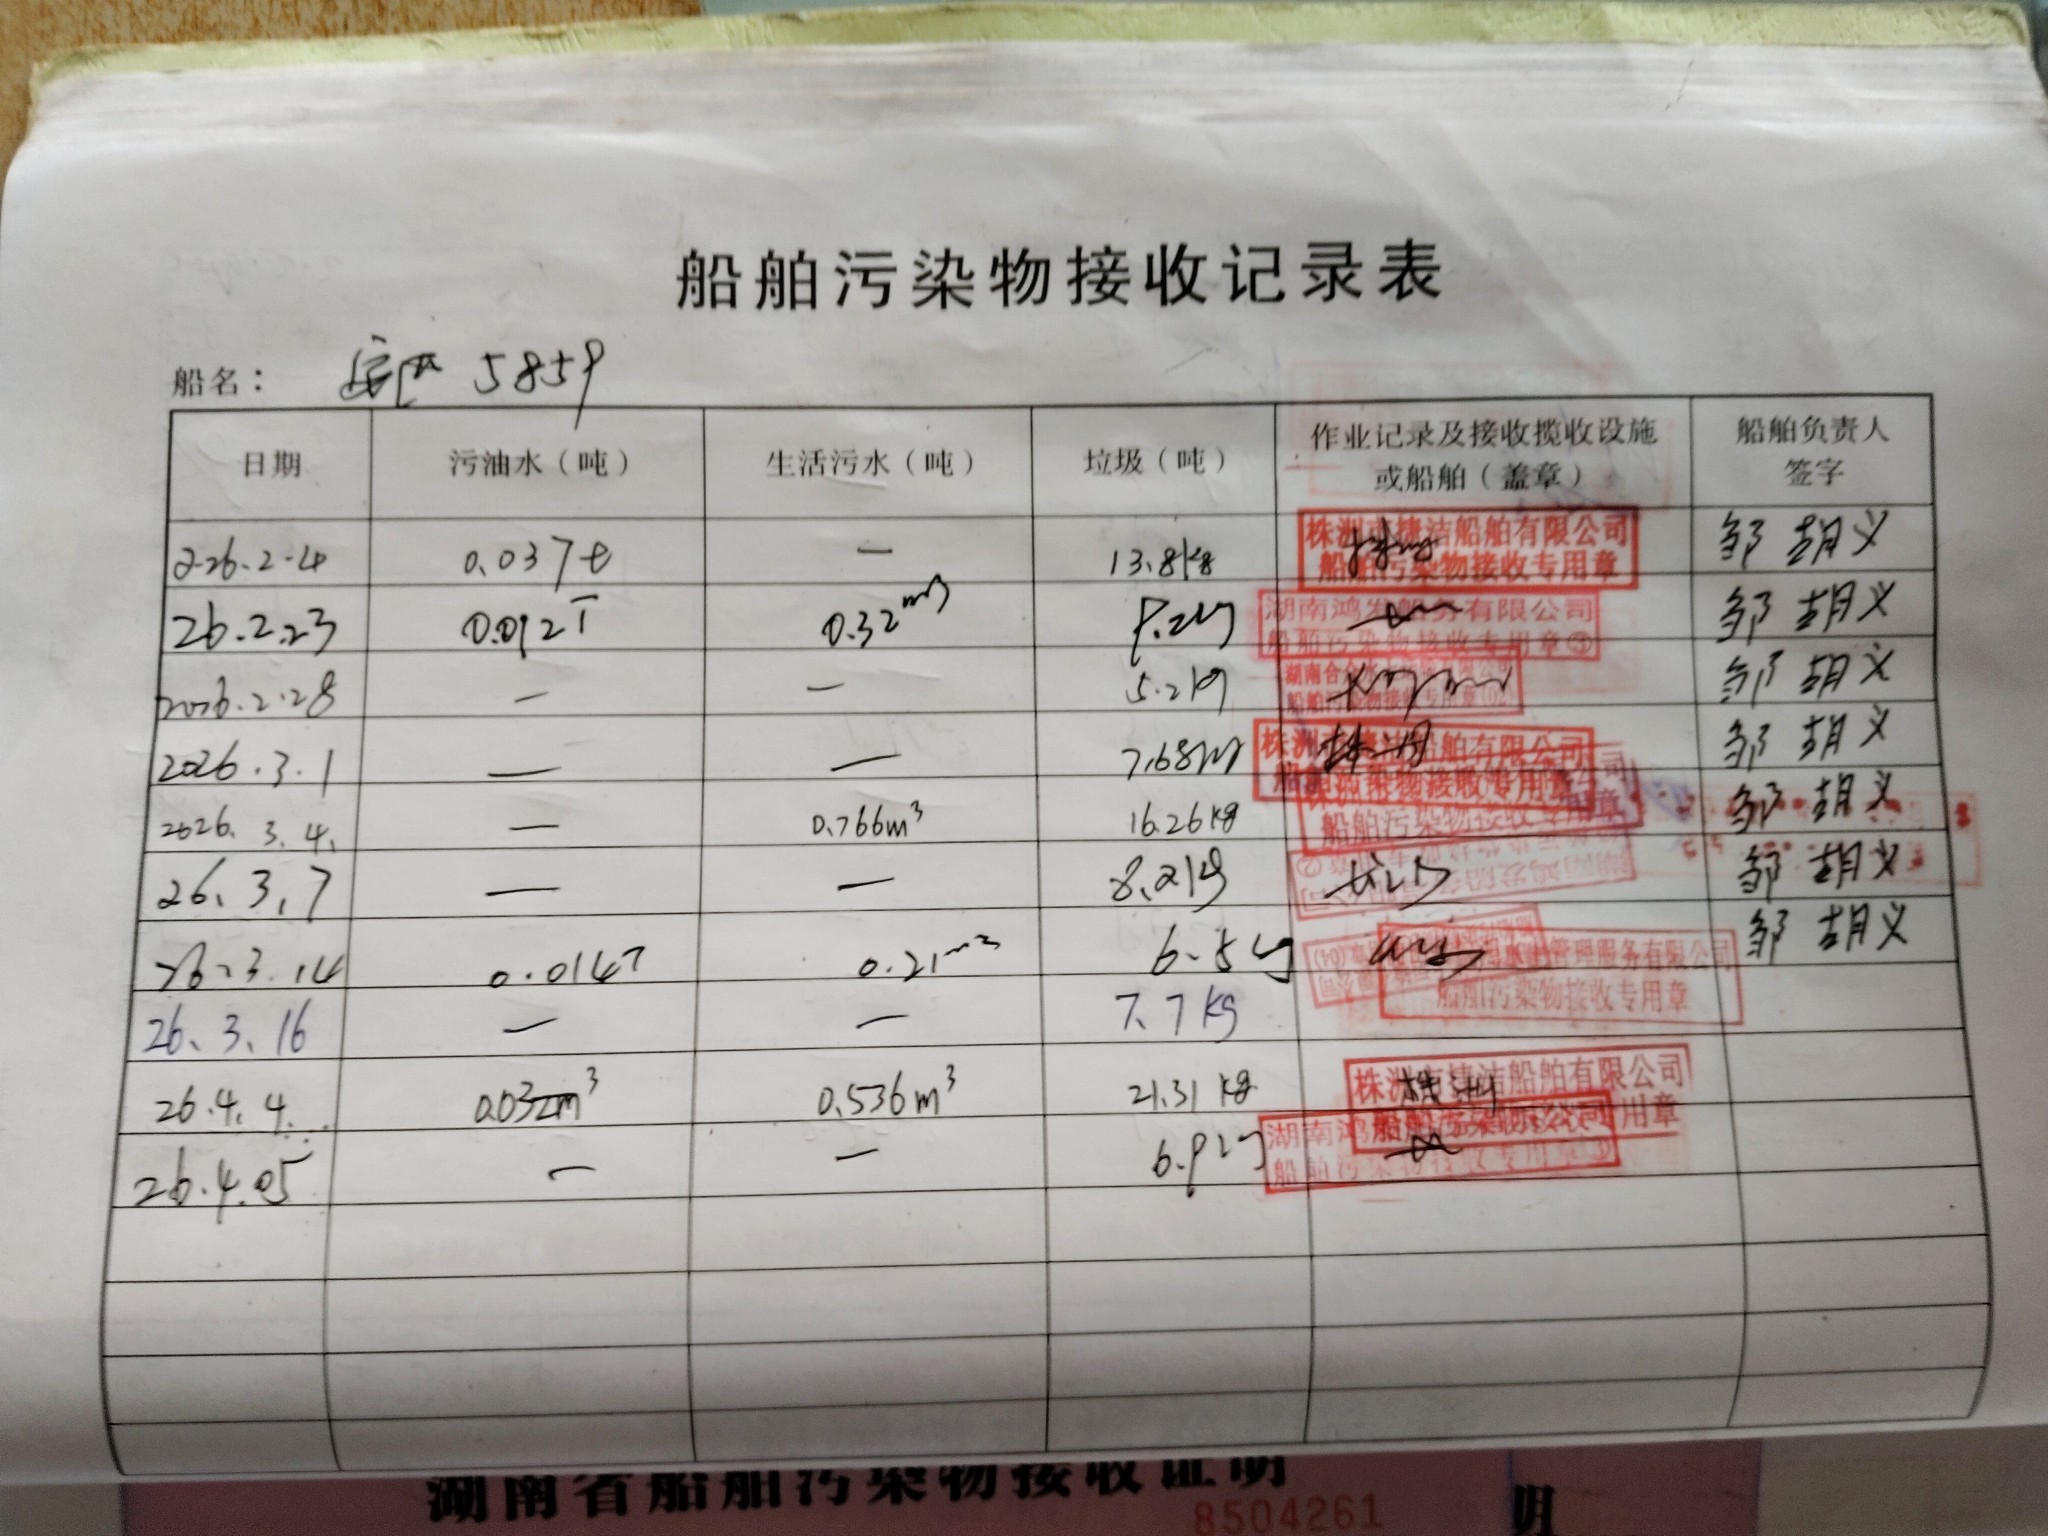 船舶污染物接收记录表
船名： 5859
日期 污油水（吨） 生活污水（吨） 垃圾（吨） 作业记录及接收揽收设施或船舶（盖章） 船舶负责人签字
226.2.4 0.037t — 13.8kg 株洲市捷洁船舶有限公司 船舶污染物接收专用章 邹胡义
26.2.23 0.012T 0.32m3 8.2kg 湖南鸿发船务有限公司 船舶污染物接收专用章③ 邹胡义
2026.2.28 — — 5.2kg 船舶污染物接收专用章 邹胡义
2026.3.1 — — 7.68kg 株洲市捷洁船舶有限公司 船舶污染物接收专用章 邹胡义
2026.3.4. — 0.766m³ 16.26kg 船舶污染物接收专用章 邹胡义
26.3.7 — — 8.2kg 邹胡义
26.3.14 0.014T 0.21m3 6.5kg 管理服务有限公司 船舶污染物接收专用章 邹胡义
26.3.16 — — 7.7kg
26.4.4. 0.032m³ 0.536m³ 21.31kg 株洲市捷洁船舶有限公司 船舶污染物接收专用章
26.4.05 — — 6.9kg 湖南鸿 船舶污染物接收专用章
湖南省船舶污染物接收证明
8504261
明